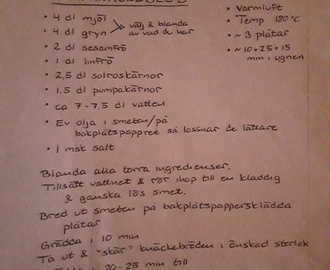 • 4 dl mjöl
• 4 dl gryn
välj & blanda
av vad du har
• 2 dl sesamfrö
• 1 dl linfrö
• 2,5 dl solroskärnor
• 1,5 dl pumpakärnor
• ca 7-7,5 dl vatten
• Ev olja i smeten/på
bakplåtspappret så lossnar de lättare
• 1 msk salt
• Varmluft
• Temp 180°C
• ~ 3 plåtar
• ~ 10+25+15
min i ugnen
Blanda alla torra ingredienser.
Tillsätt vattnet & rör ihop till en kladdig
& ganska lös smet.
Bred ut smeten på bakplåtspappersklädda
plåtar
Grädda i 10 min
Ta ut & "skär" knäckebröden i önskad storlek
i 20-25 min till